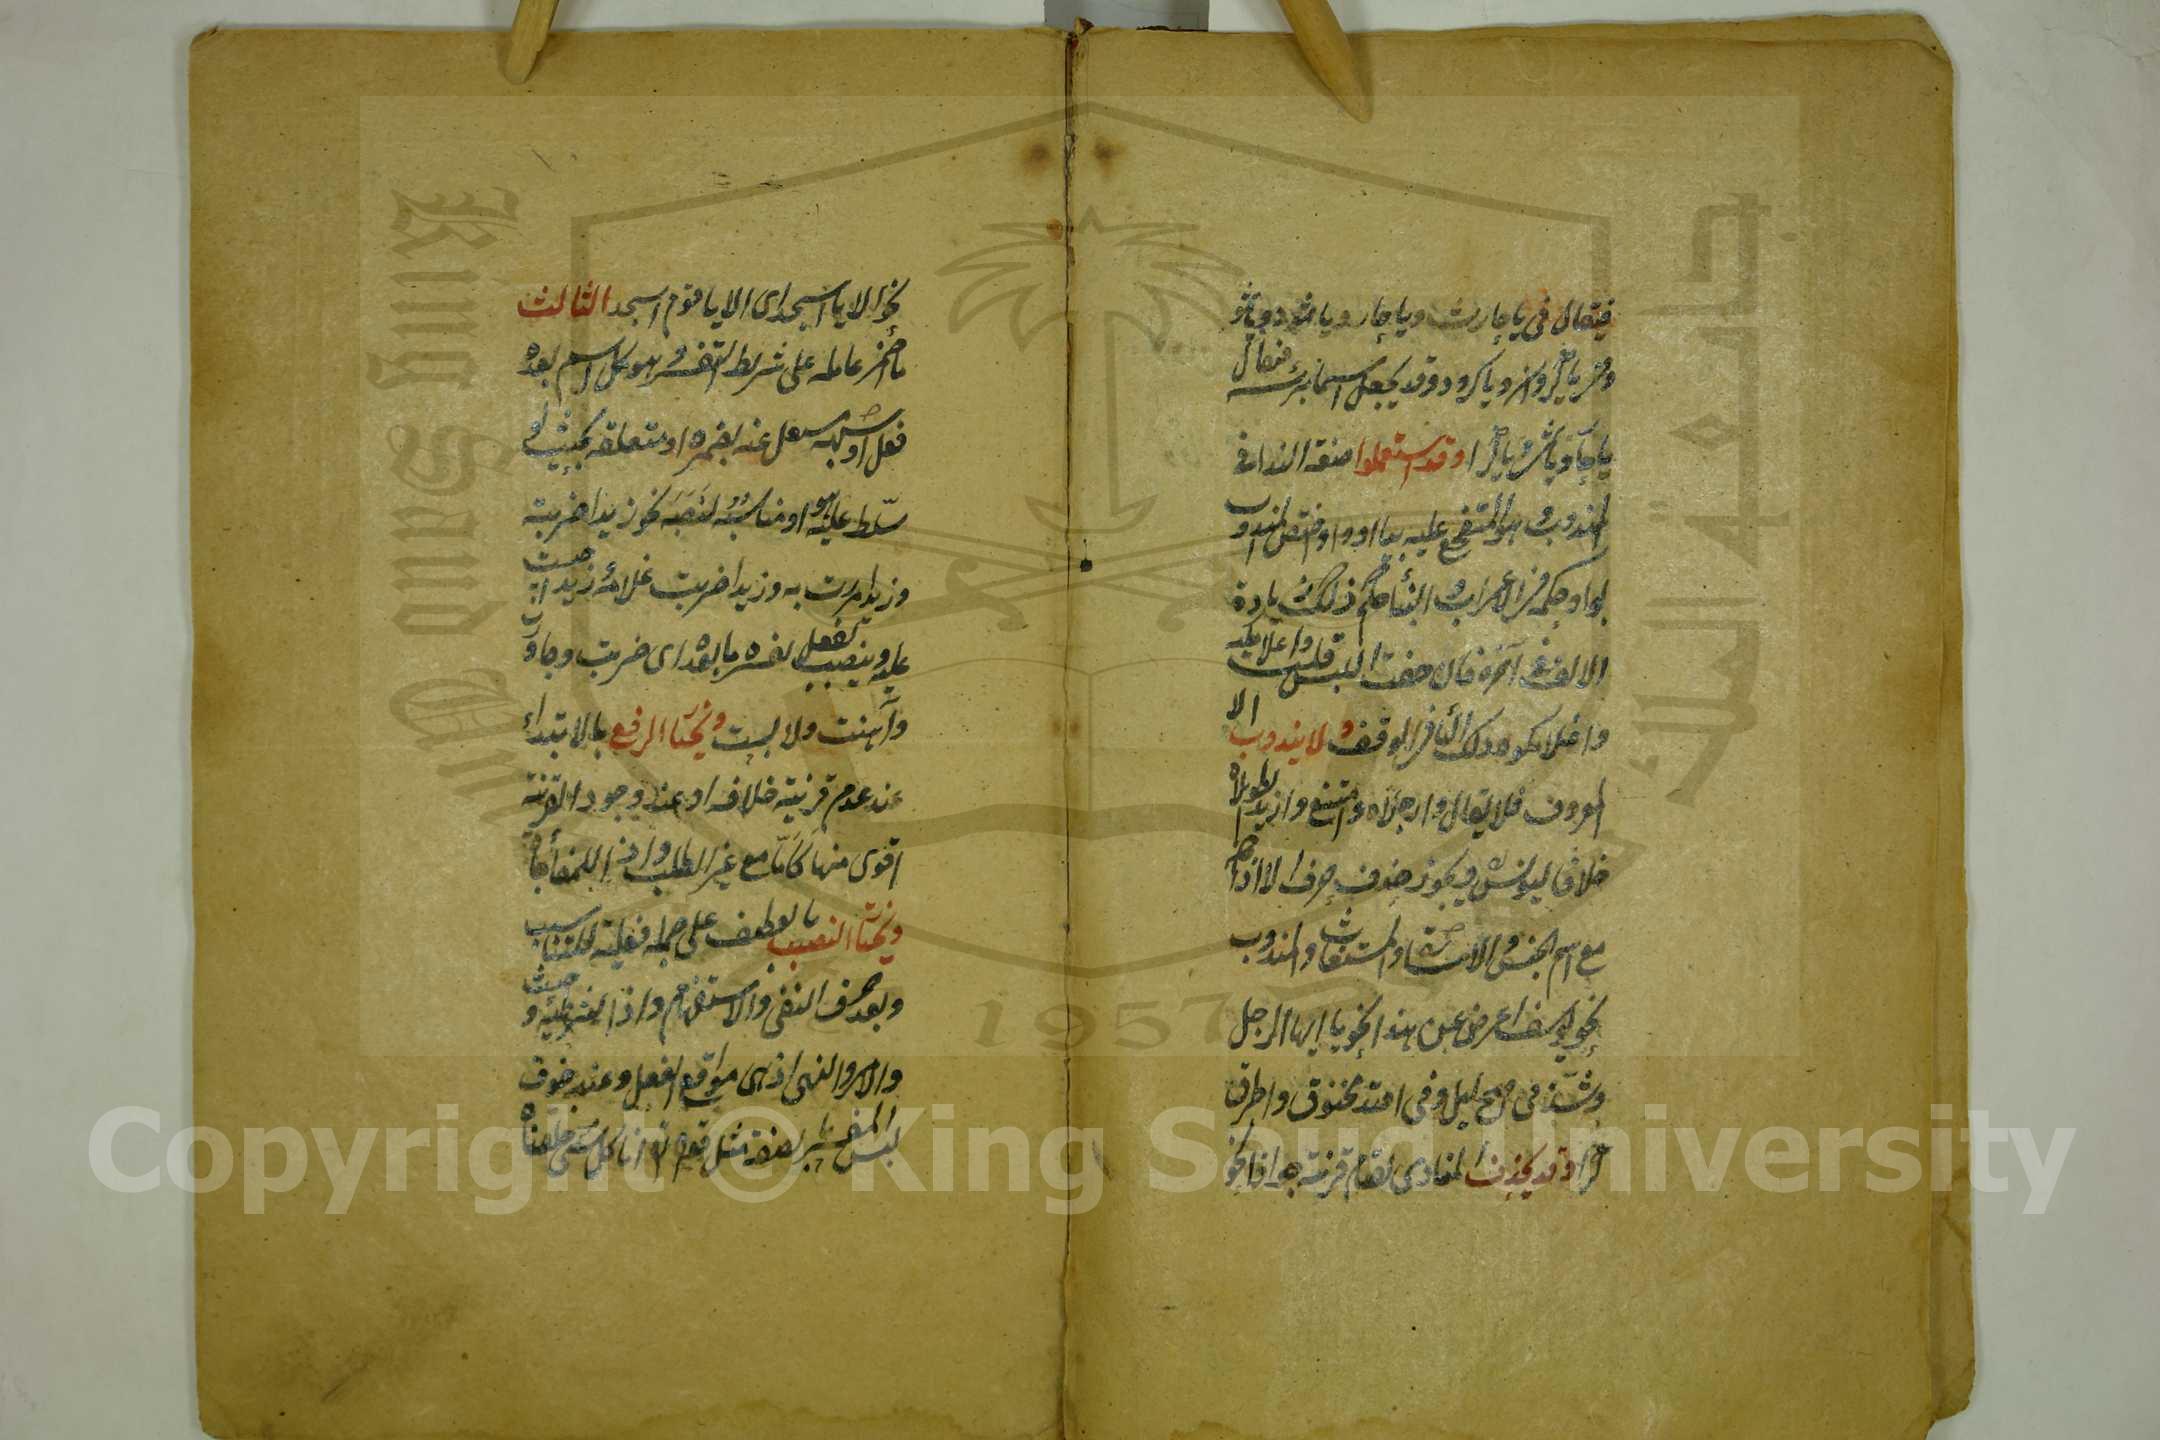 فيقال في يا حارث ويا حار ويا ثمود ويا ثمو
ويا كروان ويا كرو وقد يجعل اسما برأسه فيقال
يا حار ويا ثمي ويا كرا وقد استعملوا صيغة النداء في
المندوب وهو المتفجع عليه بيا او وا واختص المندوب
بوا وحكمه في الاعراب والبناء حكم ذلك زيادة
الالف في آخره فان خفت اللبس قلت واغلامكيه
واغلامكموه ذلك الهاء في الوقف ولا يندب الا
المعروف فلا يقال وا رجلاه وامتنع وا زيد الطويلاه
خلافا ليونس ويجوز حذف حرف النداء الا
مع اسم الجنس والاشارة والمستغاث والمندوب
نحو يوسف اعرض عن هذا نحو يا ايها الرجل
وشذ في اصبح ليل وفي افتد مخنوق واطرق
كرا وقد يحذف المنادى لقيام قرينة جوازا نحو
نحو الا يا اسجدوا اي الا يا قوم اسجدوا الثالث
ما اضمر عامله على شريطة التفسير وهو كل اسم بعده
فعل او شبهه مشتغل عنه بضميره او متعلقه بحيث لو
سلط عليه هو او مناسبه لنصبه نحو زيدا ضربته
وزيدا مررت به وزيدا ضربت غلامه وزيدا حبست
عليه وينصب بفعل يفسره ما بعده اي ضربت وجاوزت
واهنت ولابست ويختار الرفع بالابتداء
عند عدم قرينة خلافه او عند وجود القرينة
اقوى منها كاما مع غير الطلب واذا للمفاجاة
ويختار النصب بالعطف على جملة فعلية للتناسب
وبعد حرف النفي والاستفهام واذا الشرطية وحيث
والامر والنهي اذ هي مواقع الفعل وعند خوف
لبس المفسر بالصفة مثل قوله تعالى انا كل شيء خلقناه
King Saud University
1957
Copyright © King Saud University